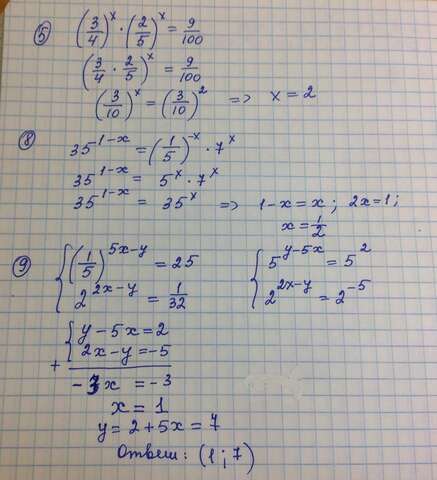 5) (3/4)^x · (2/5)^x = 9/100
(3/4 · 2/5)^x = 9/100
(3/10)^x = (3/10)^2 => x = 2
8) 35^(1-x) = (1/5)^(-x) · 7^x
35^(1-x) = 5^x · 7^x
35^(1-x) = 35^x => 1-x = x; 2x=1;
x = 1/2
9) { (1/5)^(5x-y) = 25 { 5^(y-5x) = 5^2
2^(2x-y) = 1/32 2^(2x-y) = 2^(-5)
+ { y - 5x = 2
2x - y = -5
-3x = -3
x = 1
y = 2 + 5x = 7
Ответ: (1; 7)